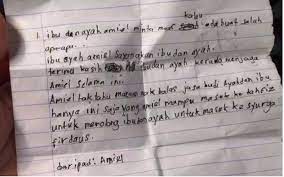 kalau
1. ibu dan ayah amiel minta maaf ada buat salah
apa-apa..
ibu ayah amiel sayangkan ibu dan ayah.
terima kasih ibu dan ayah kerana menjaga
Amiel selama ini.
Amiel tak tahu macam nak balas jasa budi ayah dan ibu
hanya ini saja yang amiel mampu masuk ke tahfiz
untuk menolong ibu dan ayah untuk masuk ke syurga
firdaus.
daripada: Amiel